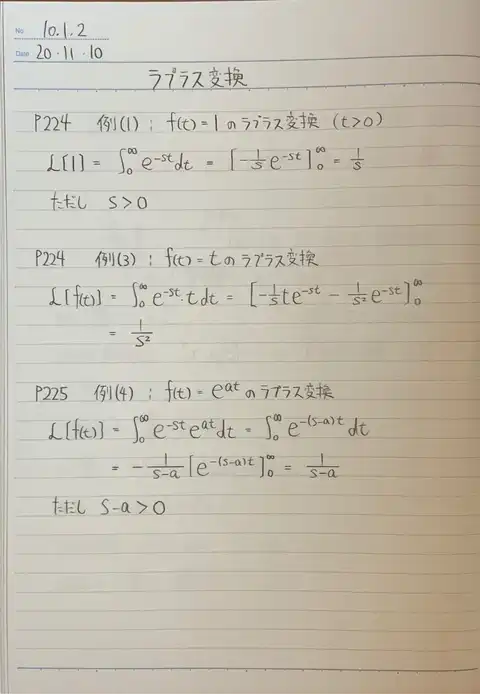 No. 10.1.2
Date 20・11・10
ラプラス変換
P224 例(1) ; f(t) = 1 のラプラス変換 (t>0)
L[1] = ∫₀^∞ e^{-st} dt = [-1/s e^{-st}]₀^∞ = 1/s
ただし S>0
P224 例(3) ; f(t) = t のラプラス変換
L[f(t)] = ∫₀^∞ e^{-st}・t dt = [-1/s t e^{-st} - 1/s² e^{-st}]₀^∞
= 1/s²
P225 例(4) ; f(t) = e^{at} のラプラス変換
L[f(t)] = ∫₀^∞ e^{-st} e^{at} dt = ∫₀^∞ e^{-(s-a)t} dt
= -1/(s-a) [e^{-(s-a)t}]₀^∞ = 1/(s-a)
ただし S-a>0